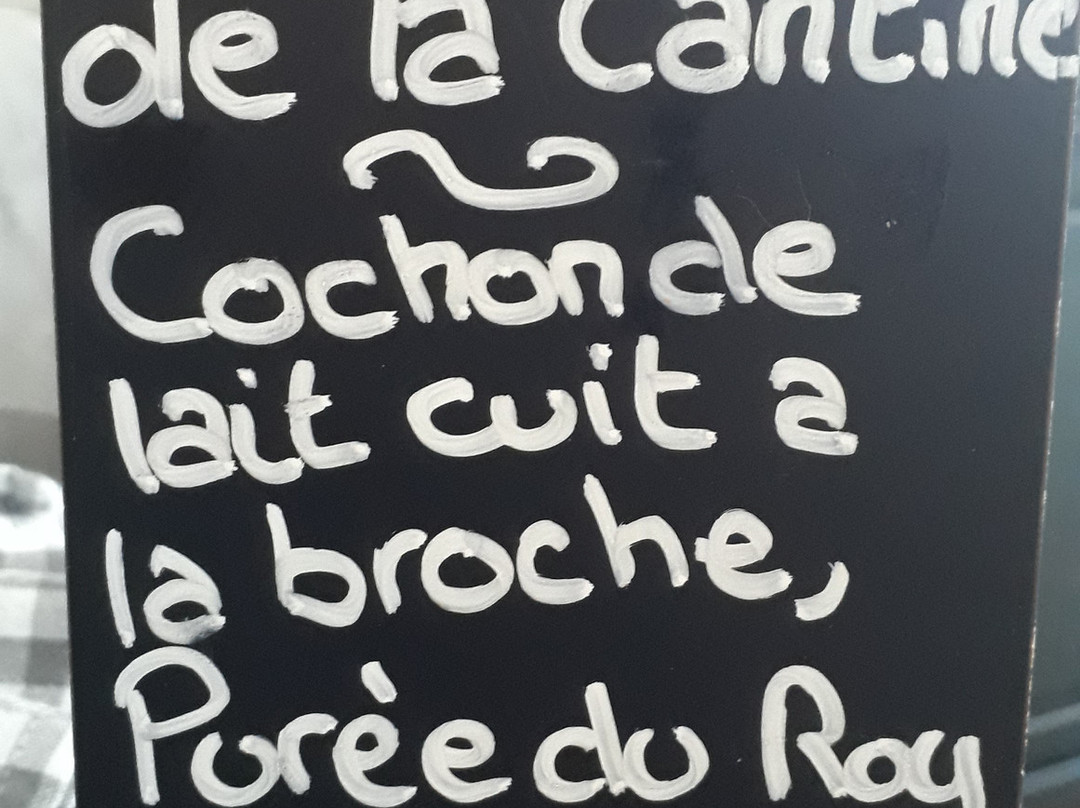 de la Cantine
Cochon de
lait cuit a
la broche,
Purèe du Roy